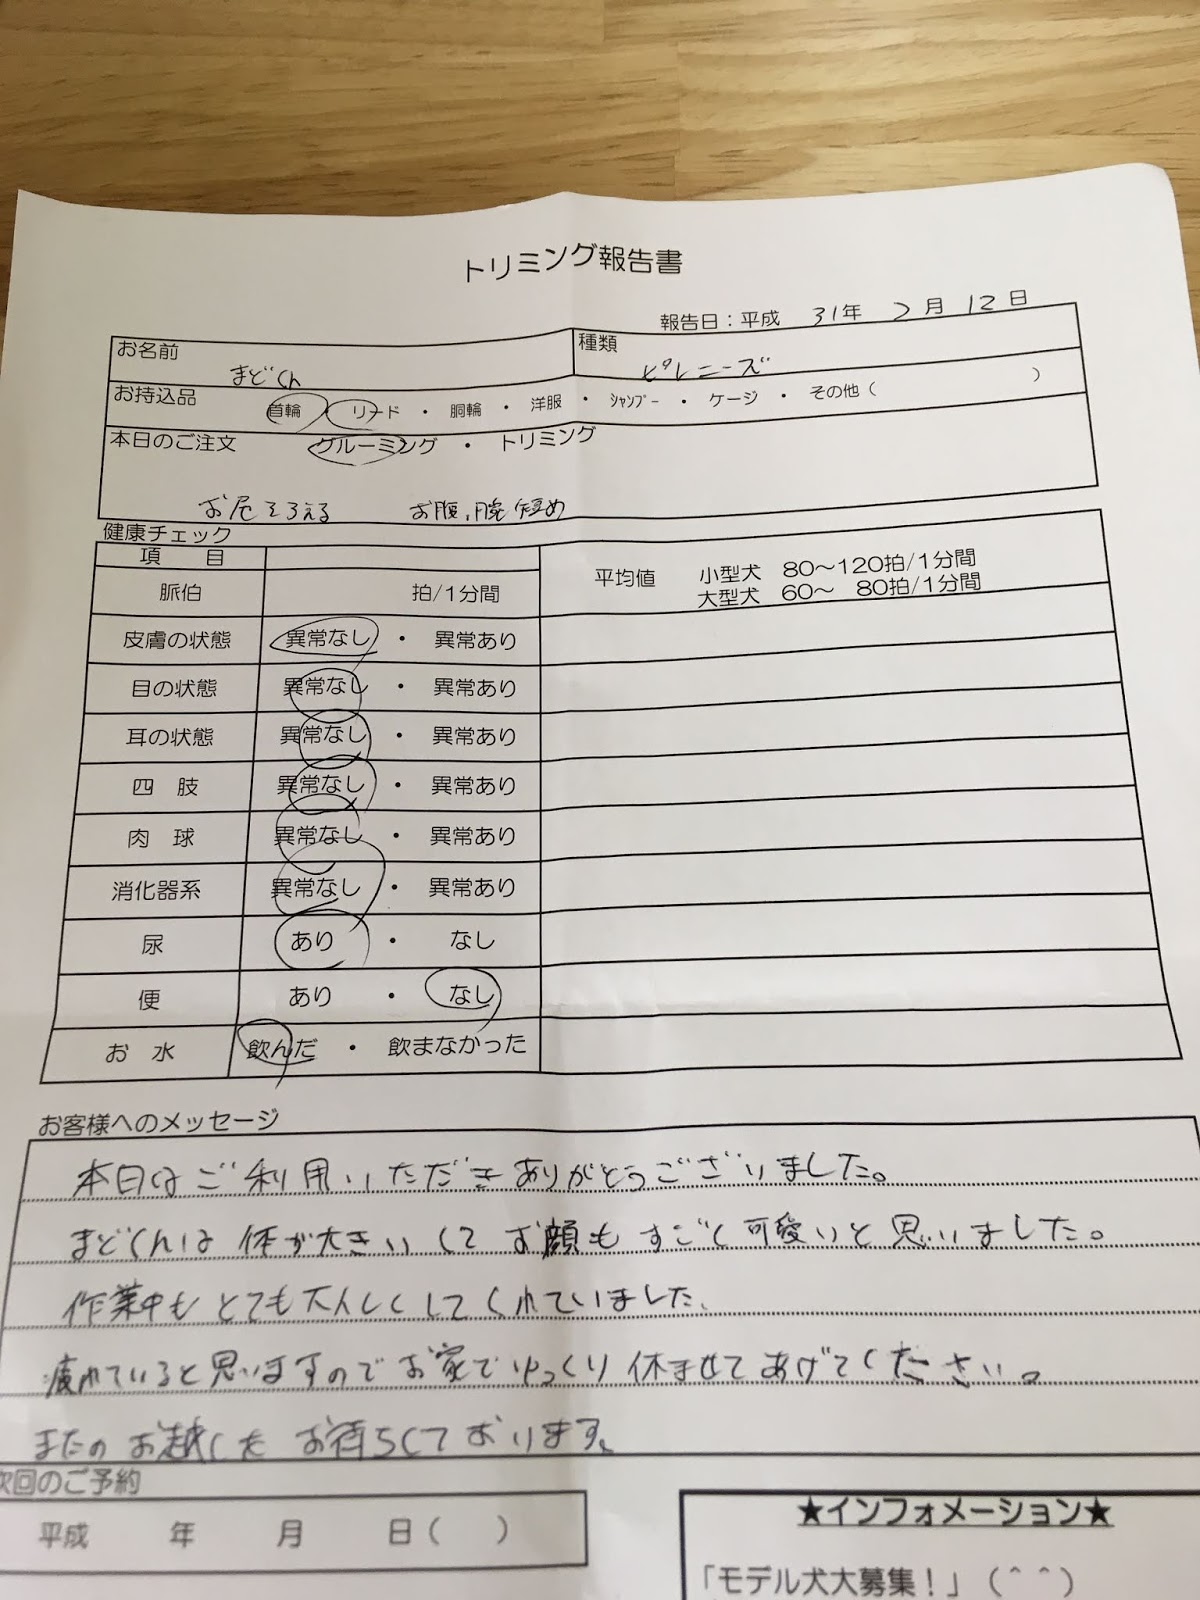 トリミング報告書
報告日：平成 31年 2月 12日
お名前 まどくん 種類 ピレニーズ
お持込品 首輪 ・ リード ・ 胴輪 ・ 洋服 ・ シャンプー ・ ケージ ・ その他（ ）
本日のご注文 グルーミング ・ トリミング
お尻そろえる お腹、腕短め
健康チェック
項 目
脈伯 拍/1分間 平均値 小型犬 80〜120拍/1分間
大型犬 60〜 80拍/1分間
皮膚の状態 異常なし ・ 異常あり
目の状態 異常なし ・ 異常あり
耳の状態 異常なし ・ 異常あり
四 肢 異常なし ・ 異常あり
肉 球 異常なし ・ 異常あり
消化器系 異常なし ・ 異常あり
尿 あり ・ なし
便 あり ・ なし
お 水 飲んだ ・ 飲まなかった
お客様へのメッセージ
本日はご利用いただきありがとうございました。
まどくんは体が大きいくてお顔もすごく可愛いと思いました。
作業中もとても大人しくしてくれていました、
疲れていると思いますのでお家でゆっくり休ませてあげてください。
またのお越しをお待ちしております、
次回のご予約
平成 年 月 日（ ）
★インフォメーション★
「モデル犬大募集！」（＾＾）